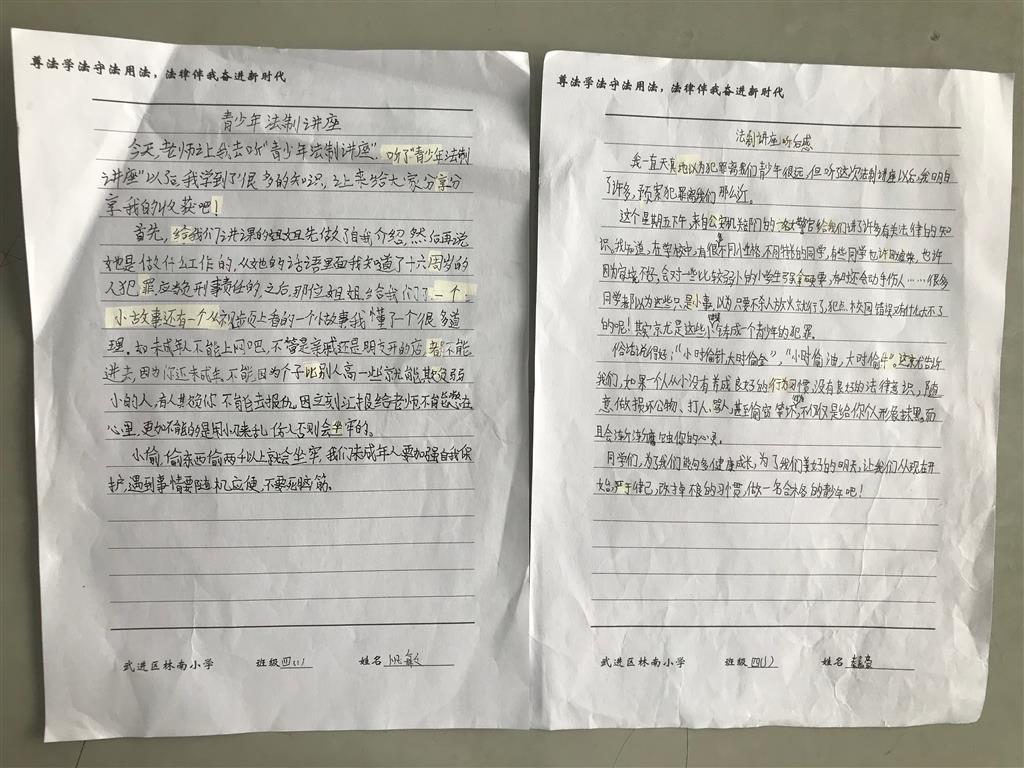 尊法学法守法用法，法律伴我奋进新时代
青少年法制讲座
今天，老师让我去听"青少年法制讲座"。听了"青少年法制
讲座"以后，我学到了很多的知识，让来给大家分享分
享我的收获吧！
首先，给我们讲课的姐姐先做了自我介绍，然后再说
她是做什么工作的，从她的话语里面我知道了十六周岁的
人犯罪应当负刑事责任的，之后，那位姐姐给我们了一个
小故事还有一个从首页上看的一个小故事我懂了个很多道
理。如未成年人不能上网吧，不管是亲戚还是朋友开的店，都不能
进去，因为你还未成年。不能因为个子比别人高一些就能欺负弱
小的人，有人欺负你不能自去报仇，因立刻汇报给老师不能憋在
心里，更加不能的是用小刀来乱伤人否则会坐牢的。
小偷，偷东西偷两千以上就会坐牢，我们未成年人要加强自我保
护，遇到事情要随机应便，不要死脑筋。
武进区林南小学 班级四(1) 姓名 敏
尊法学法守法用法，法律伴我奋进新时代
法制讲座听后感
我一直天真地以为犯罪离我们青少年很远，但听了这次法制讲座以后，我明白
了许多，原来犯罪离我们那么近。
这个星期五下午，来自公安机关部门的警官给我们讲了许多有关法律的知
识。我知道，在学校中，有很多不同性格、不同特的同学，有些同学也许因，也许
因为家境不好，会对一些比较弱小的小学生强拿硬要，有时还会动手伤人……很多
同学都以为这些只是小事，以为只要不杀人放火就行了，犯点校园错误有什么大不了
的呢！其实尤是这些小事未成个青少年的犯罪。
俗话说得好："小时偷针，大时偷金"，"小时偷油，大时偷牛"。这就告诉
我们，如果一个人从小没有养成良好的行为习惯，没有良好的法律意识，随
意做损坏公物、打人、骂人，甚至偷窃等坏事，不仅仅是给你仪形象抹黑，而
且会渐渐腐蚀你的心灵。
同学们，为了我们能向多健康成长，为了我们美好的明天，让我们从现在开
始，严于律己，改掉不良的习惯，做一名合格的青少年吧！
武进区林南小学 班级四(1) 姓名